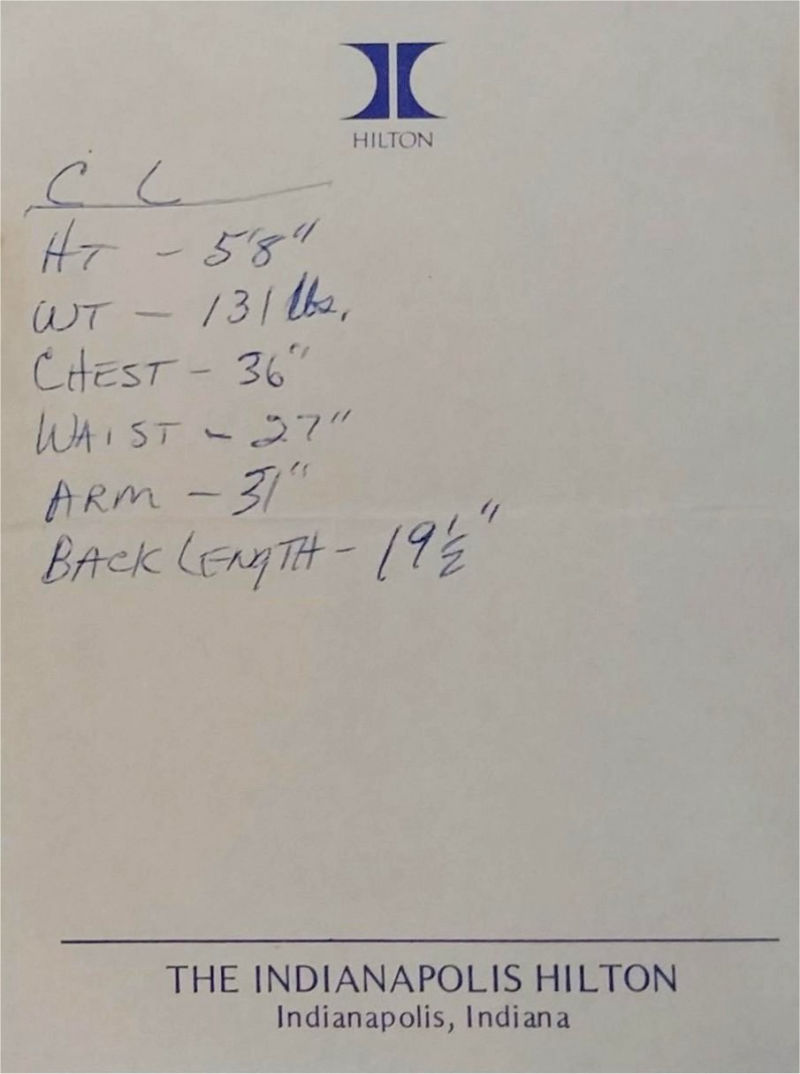 HILTON
C L
HT - 5'8"
WT - 131 lbs.
CHEST - 36"
WAIST - 27"
ARM - 31"
BACK LENGTH - 19½"
THE INDIANAPOLIS HILTON
Indianapolis, Indiana